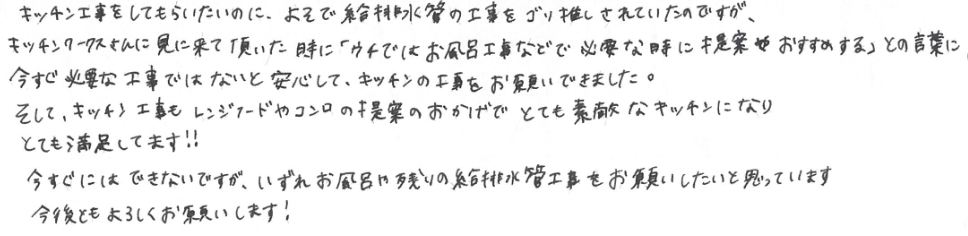 キッチン工事をしてもらいたいのに、よそで給排水管の工事をゴリ推しされていたのですが、
キッチンワークスさんに見に来て頂いた時に「ウチではお風呂工事などで必要な時に提案やおすすめする」との言葉に
今すぐ必要な工事ではないと安心して、キッチンの工事をお願いできました。
そして、キッチン工事もレンジフードやコンロの提案のおかげでとても素敵なキッチンになり
とても満足してます!!
今すぐにはできないですが、いずれお風呂や残りの給排水管工事をお願いしたいと思っています
今後ともよろしくお願いします!